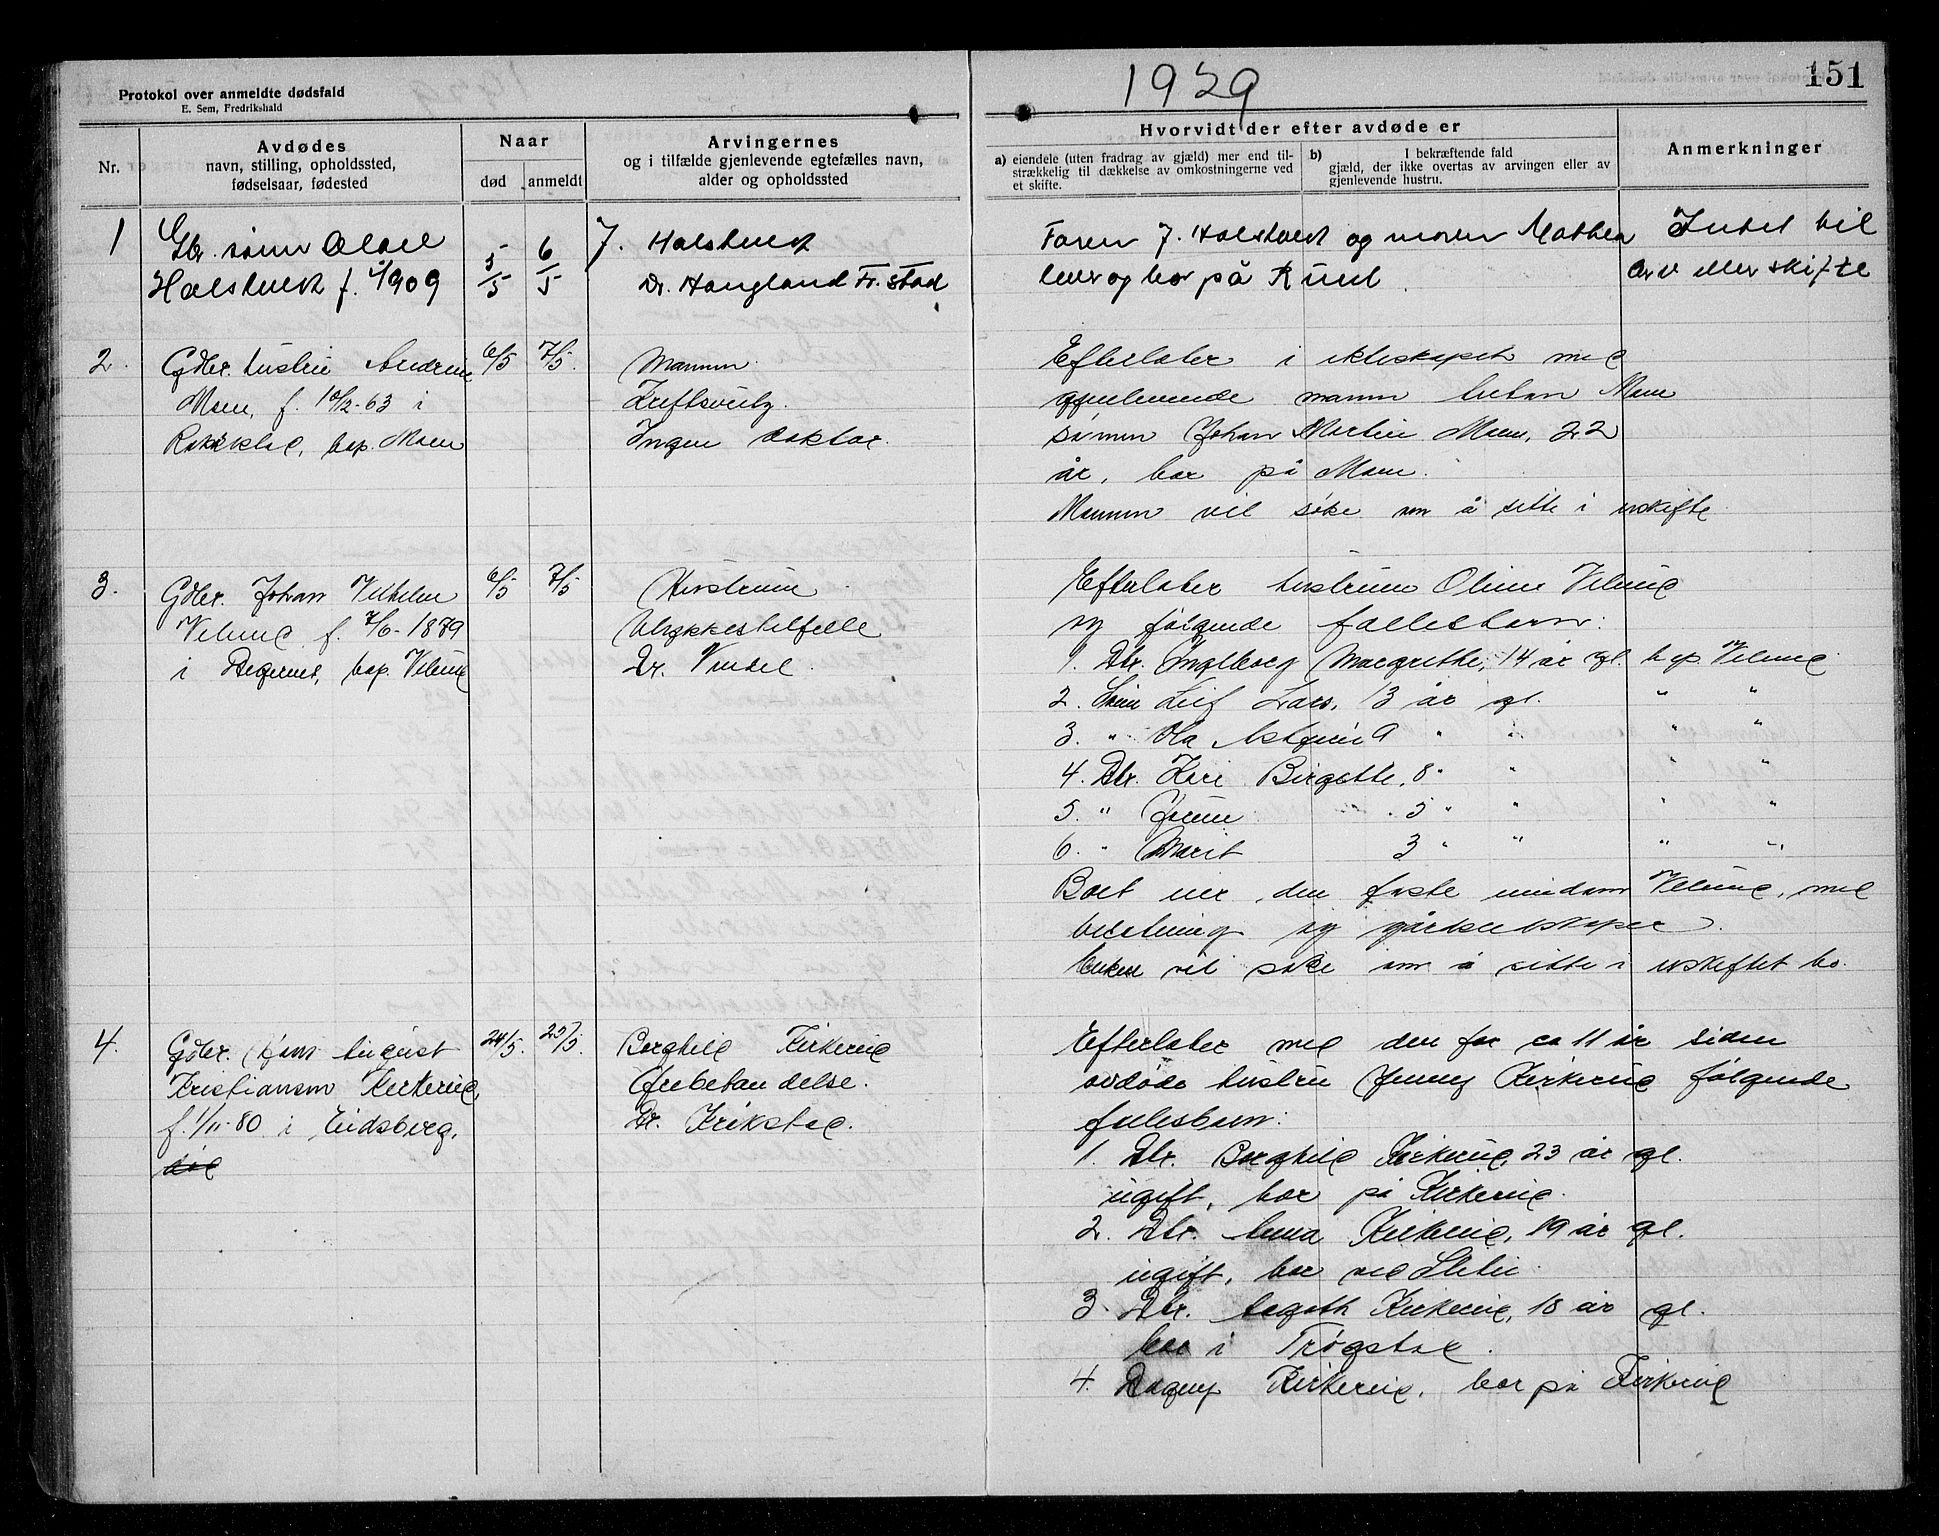 Protokol over anmeldte dødsfald
E. Sem, Fredrikshald
1929
151
Nr.
Avdødes
navn, stilling, opholdssted,
fødselsaar, fødested
Naar
død
anmeldt
Arvingernes
og i tilfælde gjenlevende egtefælles navn,
alder og opholdssted
Hvorvidt der efter avdøde er
a) eiendele (uten fradrag av gjæld) mer end til-
strækkelig til dækkelse av omkostningerne ved
et skifte.
b) I bekræftende fald
gjæld, der ikke overtas av arvingen eller av
gjenlevende hustru.
Anmerkninger
1
Gbr. sønn
f. 1909
5/5
6/5
J.
Dr. Haugland Fr.stad
Faren J. og moren Mathea
lever og bor på
Intet til
arv eller skifte
2.
Gdbr. hustru Andrine
Moen, f. 10/2-63 i
Rakkestad, bop. Moen
6/5
7/5.
Mannen
Ingen doktor.
Efterlater i ekteskapet med
gjenlevende mann Moen
sønnen Johan Martin Moen, 22
år, bor på Moen.
Mannen vil søke om å sitte i uskifte
3.
Gdbr. Johan Vilhelm
f. 7/6-1879
i Degernes, bop.
6/5
7/5
Hustruen
Ulykkestilfelle
Dr.
Efterlater hustruen Oline
og følgende fellesbarn:
1. Dtr. Ingeborg Margrethe, 14 år gl. bop.
2. Sønn Leif Lars, 13 år gl. " "
3. " Ola 9 " " " "
4. Dtr. Kari Birgitte, 8 " " " "
5. " Jorunn 5 " " " "
6. " Marit 3 " " " "
Boet eier den faste eiendom med
besetning og gårdsredskaper.
Enken vil søke om å sitte i uskiftet bo.
4.
Gdbr. Hans August
Kristiansen Kirkerud,
f. 1/11-80 i Eidsberg,
24/5.
25/5.
Borghild Kirkerud
Dr. Krikstad.
Efterlater med den for ca 11 år siden
avdøde hustru Jenny Kirkerud følgende
fellesbarn:
1. Dtr. Borghild Kirkerud, 23 år gl.
ugift, bor på Kirkerud.
2. Dtr. Anna Kirkerud, 19 år gl.
ugift, bor ved
3. Dtr. Aagoth Kirkerud, 18 år gl.
bor i Trøgstad.
4. Dagny Kirkerud, bor på Kirkerud